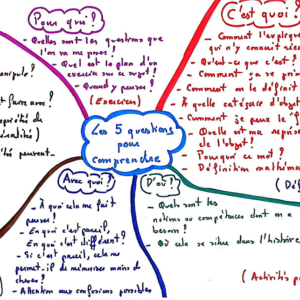 Pour quoi ?
- Quelles sont les questions que
l'on va me poser ?
- Quel est le plan d'un
exercice sur ce sujet ?
- Quand y penser ?
(Exercices)
C'est quoi ?
- Comment l'expliquer
qui n'y connaît rien
- Qu'est-ce que c'est ?
- Comment ça se
- Comment on le définit
- À quelle catégorie d'objet
- Comment je peux le
- Quelle est ma
de l'objet ?
- Pourquoi ce mot ?
- Définition
Les 5 questions
pour
comprendre
faire avec ?
peuvent
Avec quoi ?
- À quoi cela me fait
penser ?
- En quoi c'est pareil,
En quoi c'est différent ?
- Si c'est pareil, cela me
permet-il de mémoriser moins de
choses ?
- Attention aux confusions possibles
D'où ?
- Quels sont les
notions ou compétences dont on a
besoin ?
- Où cela se situe dans l'histoire
(Activités